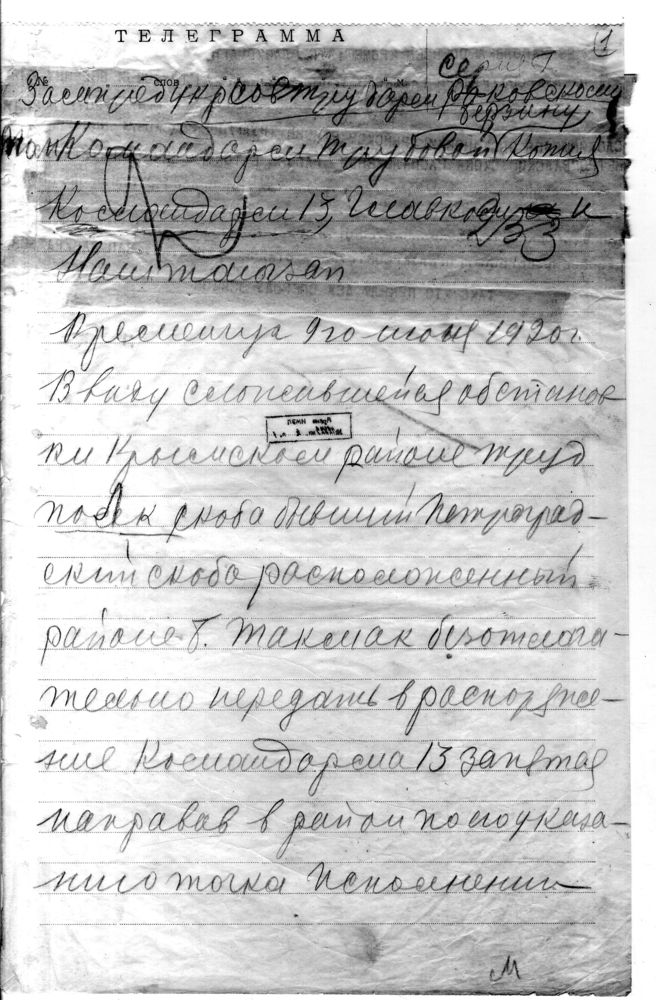 ТЕЛЕГРАММА
1
Серия Г
Зампредукрсовтрударм Раковскому
Берзину
Командарм трудовой Копия
Командарм 13, Главком и
233
Наштаюгзап
Кременчуг 9го июня 1920г.
В виду сложившейся обстанов
ки Крымском районе труд
полк скоба бывший Петроград-
ский скоба расположенный
районе Б. Такмак безотлага-
тельно передать в распоряже-
ние Командарма 13 запятая
направив в район по его указа-
нию точка Исполнении
М